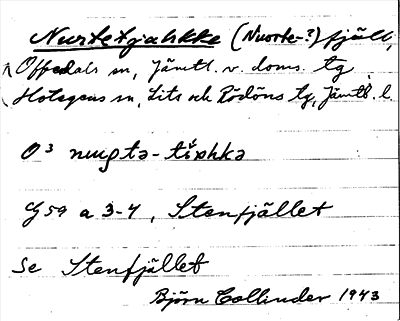 Nuortetjahkke (Nuorte-?) fjäll,
Offerdals sn, Jämtl. v. doms. tg
Hotagens sn, Lits och Rödöns tg, Jämtl. l.
O³
G 59 a 3-4, Stenfjället
Se Stenfjället
Björn Collinder 1943